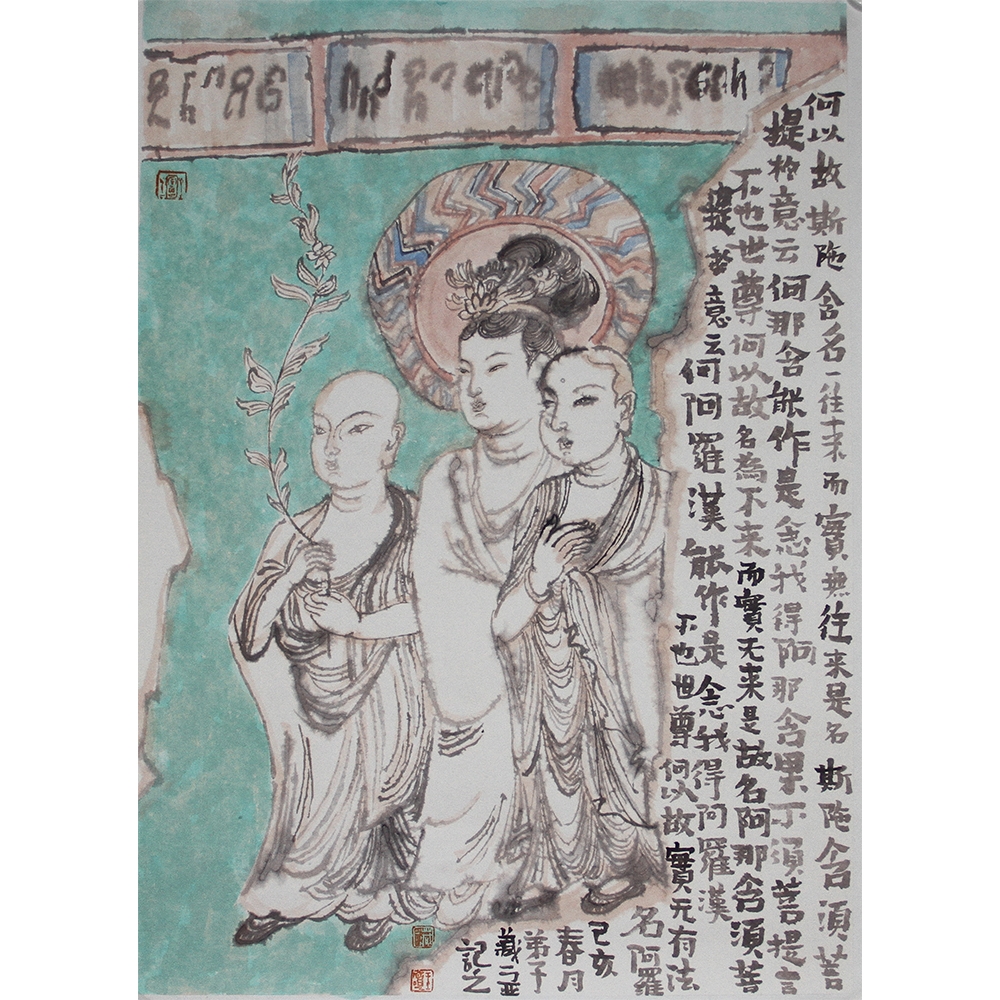 何以故斯陁含名一往来而實無往来是名斯陁含須菩
提於意云何那含能作是念我得阿那含果不須菩提言
不也世尊何以故名為不来而實无来是故名阿那含須菩
提於意云何阿羅漢能作是念我得阿羅漢
不也世尊何以故實无有法
名阿羅
己亥
春月
弟子
藏
記之